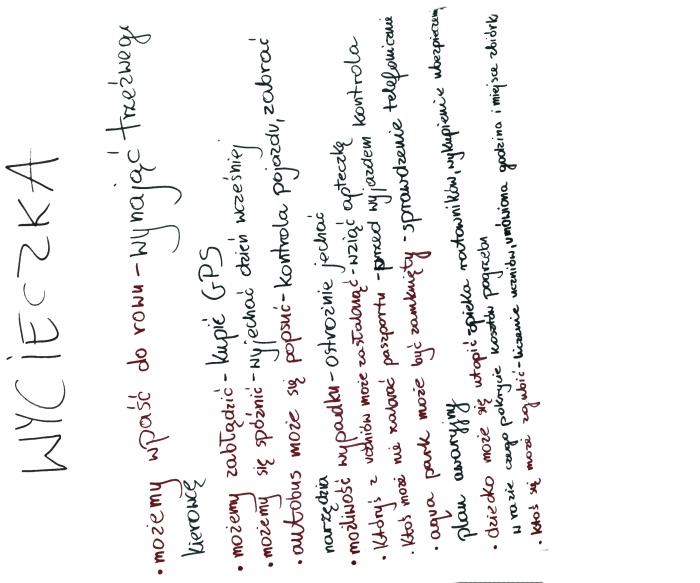 WYCIECZKA
• możemy wpaść do rowu - wynająć trzeźwego
kierowcę
• możemy zabłądzić - kupić GPS
• możemy się spóźnić - wyjechać dzień wcześniej
• autobus może się popsuć - kontrola pojazdu, zabrać
narzędzia
• możliwość wypadku - ostrożnie jechać
• Któryś z uczniów może zasłabnąć - wziąć apteczkę
• Ktoś może nie zabrać paszportu - przed wyjazdem kontrola
• aqua park może być zamknięty - sprawdzenie telefoniczne
plan awaryjny
• dziecko może się utopić opieka ratowników, wykupienie ubezpieczeń,
w razie czego pokrycie kosztów pogrzebu
• ktoś się może zgubić - liczenie uczniów, umówiona godzina i miejsce zbiórki